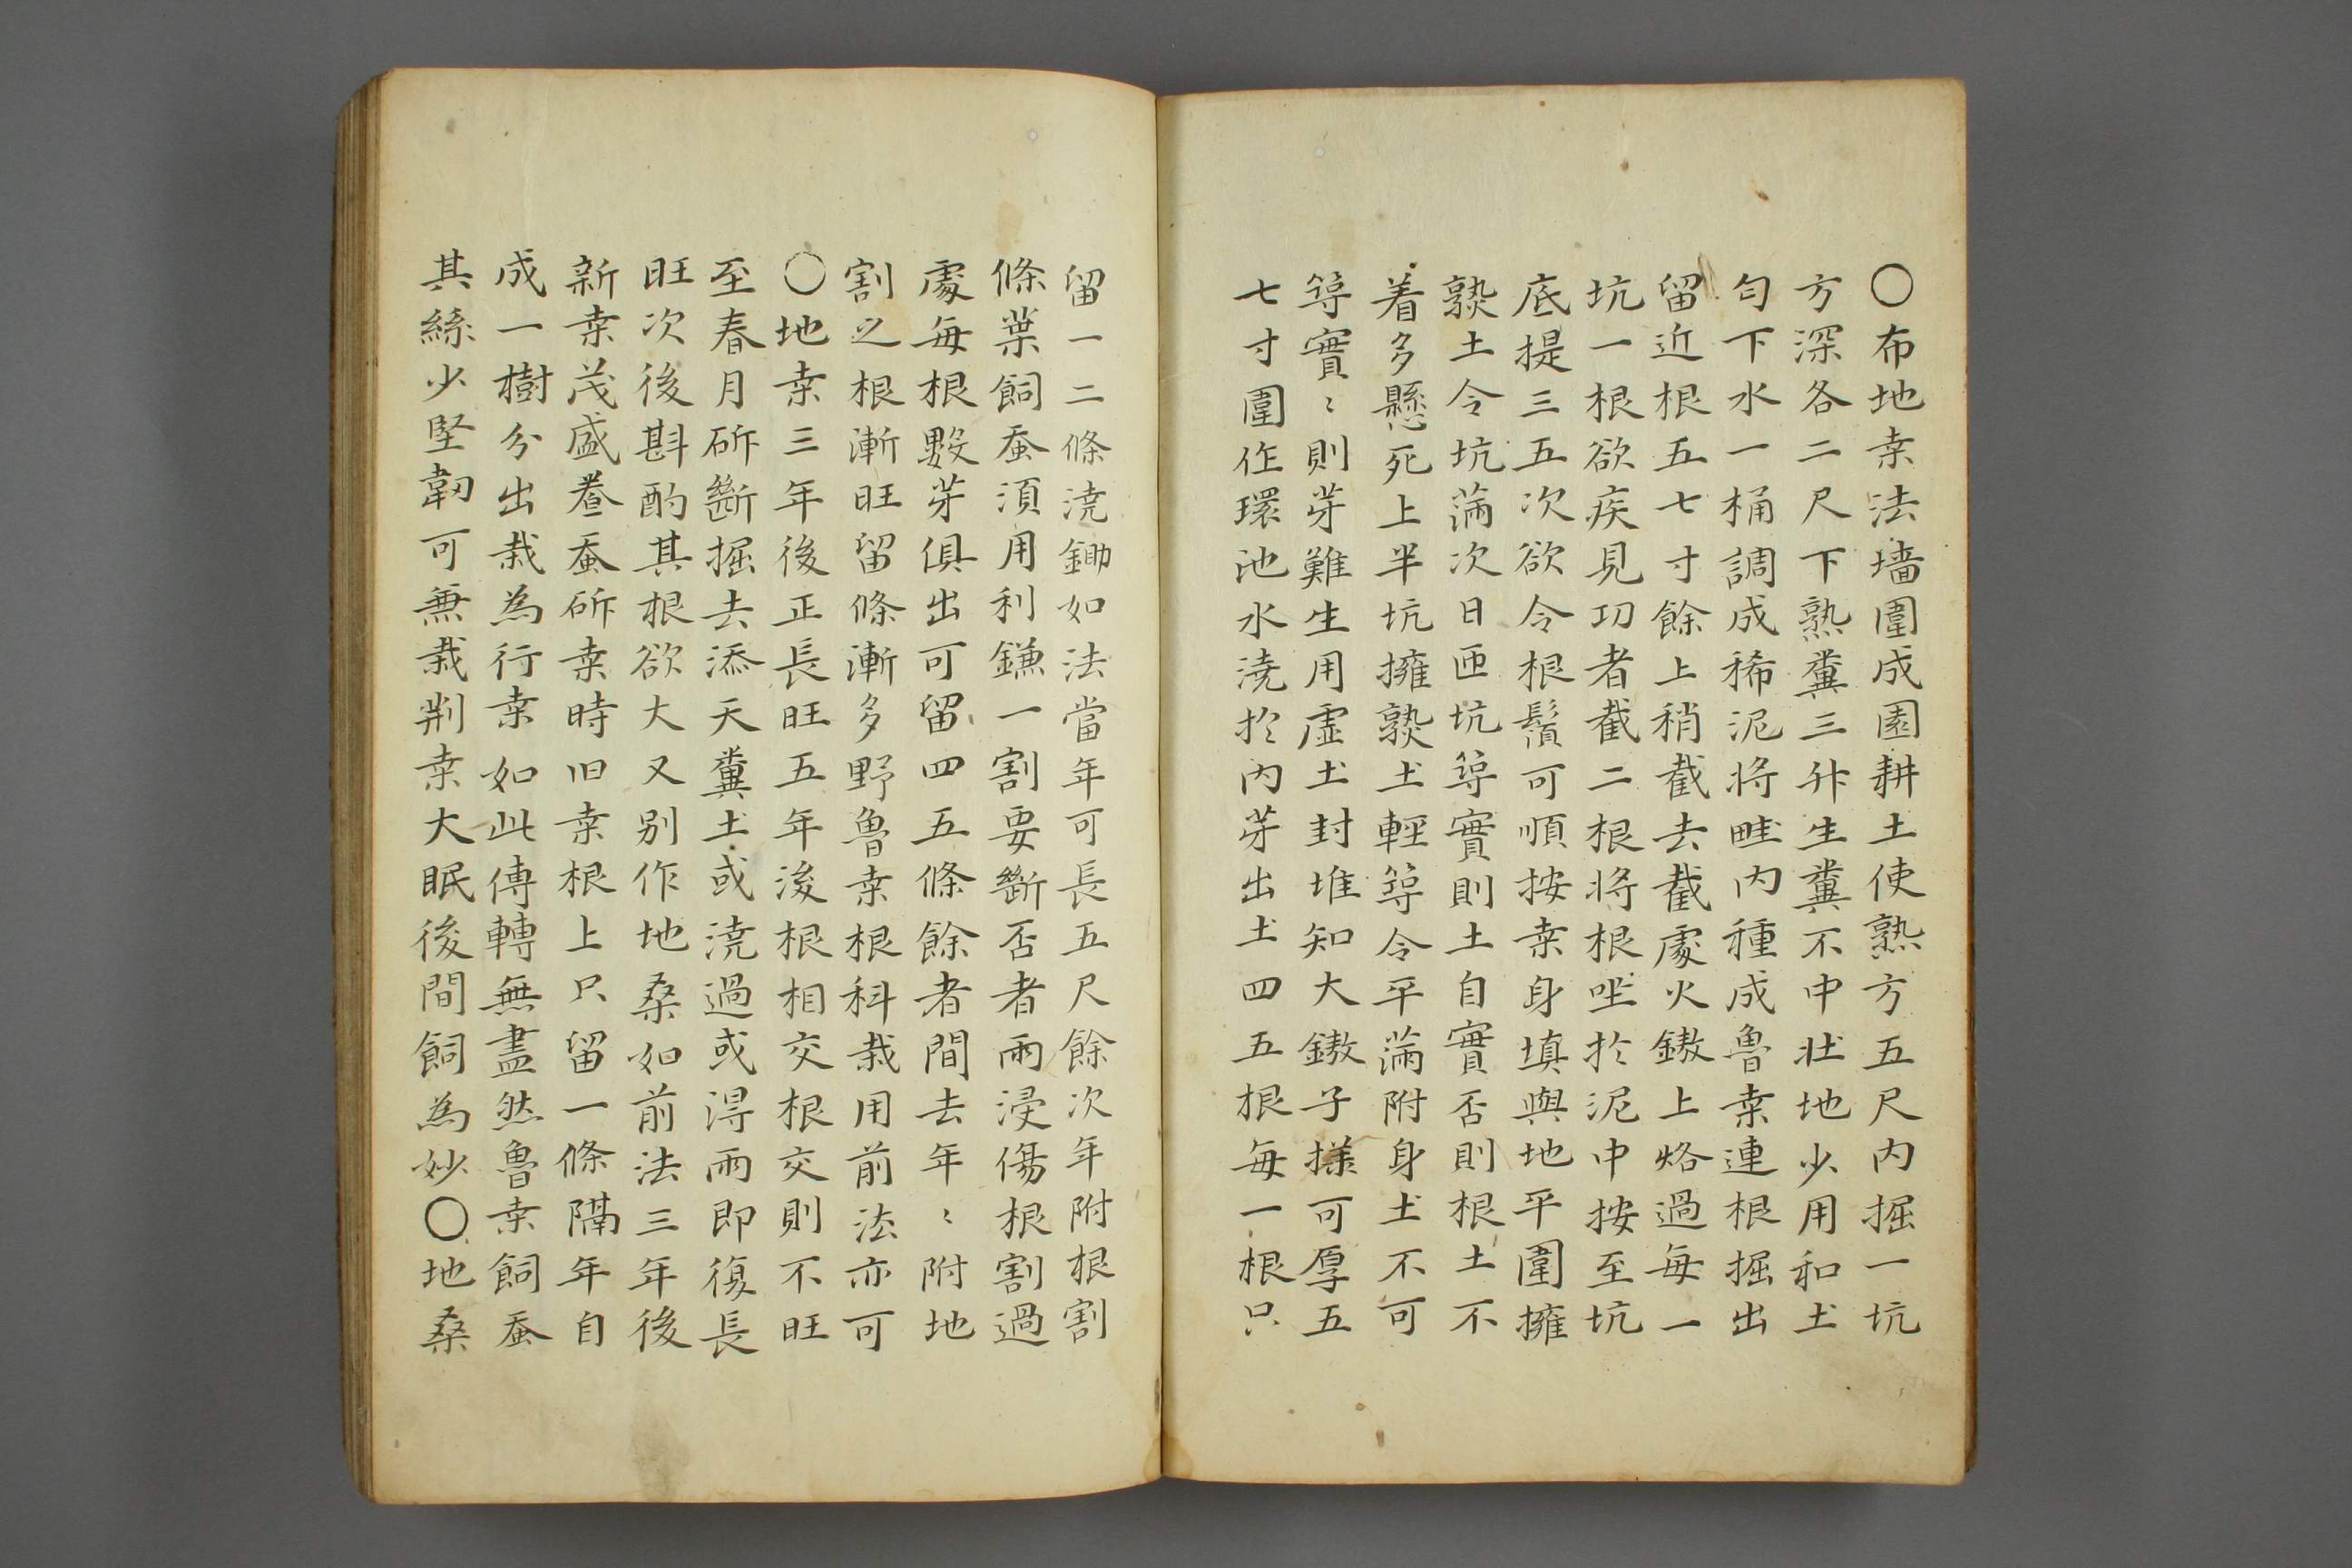 〇布地桒法墻圍成園耕土使熟方五尺内掘一坑
方深各二尺下熟糞三升生糞不中壯地少用和土
匀下水一桶調成稀泥将畦内種成魯桒連根掘出
留近根五七寸餘上稍截去截處火鏊上烙過每一
坑一根欲疾見功者截二根将根坐扵泥中按至坑
底提三五次欲令根鬚可順按桒身填與地平圍擁
熟土令坑滿次日匝坑築實則土自實否則根土不
着多懸死上半坑擁熟土輕築令平滿附身土不可
築實〻則芽難生用虛土封堆如大鏊子様可厚五
七寸圍作環池水澆扵内芽出土四五根每一根只
留一二條澆鋤如法當年可長五尺餘次年附根割
條葉飼蚕湏用利鎌一割要斷否者雨浸傷根割過
處每根數芽俱出可留四五條餘者間去年〻附地
割之根漸旺留條漸多野魯桒根科栽用前法亦可
〇地桒三年後正長旺五年後根相交根交則不旺
至春月斫斷掘去添天糞土或澆過或淂雨即復長
旺次後斟酌其根欲大又别作地桑如前法三年後
新桒茂盛養蚕斫桒時旧桒根上只留一條隔年自
成一樹分出栽為行桒如此傳轉無盡然魯桒飼蚕
其絲少堅韌可兼栽荆桒大眠後間飼為妙〇地桑